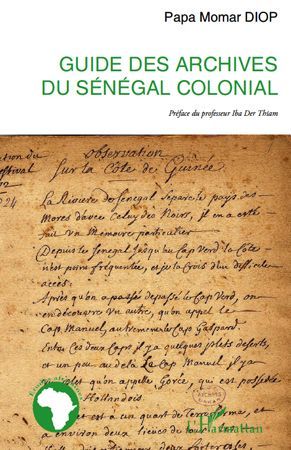 Papa Momar DIOP
GUIDE DES ARCHIVES
DU SÉNÉGAL COLONIAL
Préface du professeur Iba Der Thiam
observation
Sur la Côte de Guinée
La Riviere de Senegal Separe le pays des
Mores d'avec Celuy des Noirs, il en a esté
fait un Memoire particulier
Depuis le Senegal Jusqu'au Cap Verd la Côte
n'est point fréquentée, et je la Crois d'un difficile
acces.
Après qu'on a passé depassé le Cap Verd, on
en découvre un autre, qu'on appel
Cap Manuel, autrement le Cap Gaspard
Entre Ces deux Caps il y a quelques
et un peu au delà le Cap Manuel, il y a
qu'on appelle, Gorée, qui est possédée
Hollandois.
est a un quart de Terre ferme, et
a environ deux lieues de tour
L'Harmattan